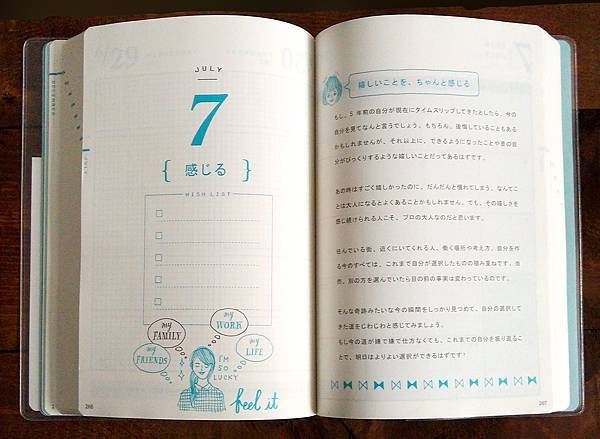 JULY
7
{ 感じる }
WISH LIST
my
FAMILY
my
WORK
my
FRIENDS
my
LIFE
I'M
SO
LUCKY
feel it
266
嬉しいことを、ちゃんと感じる
もし、5年前の自分が現在にタイムスリップしてきたとしたら、今の
自分を見てなんと言うでしょう。もちろん、後悔していることもある
かもしれませんが、それ以上に、できるようになったことや昔の自
分がびっくりするような嬉しいことだってあるはずです。
あの時はすごく嬉しかったのに、だんだんと慣れてしまう、なんてこ
とは大人になるとよくあることかもしれません。でも、その嬉しさを
感じ続けられる人こそ、プロの大人なのだと思います。
住んでいる街、近くにいてくれる人、働く場所や考え方。自分を作
る今のすべては、これまで自分が選択したものの積み重ねです。当
然、別の方を選んでいたら目の前の事実は変わっているのです。
そんな奇跡みたいな今の瞬間をしっかり見つめて、自分の選択して
きた道をじわじわと感じてみましょう。
もし今の道が嫌で嫌で仕方なくても、これまでの自分を振り返るこ
とで、明日はよりよい選択ができるはずです！
267